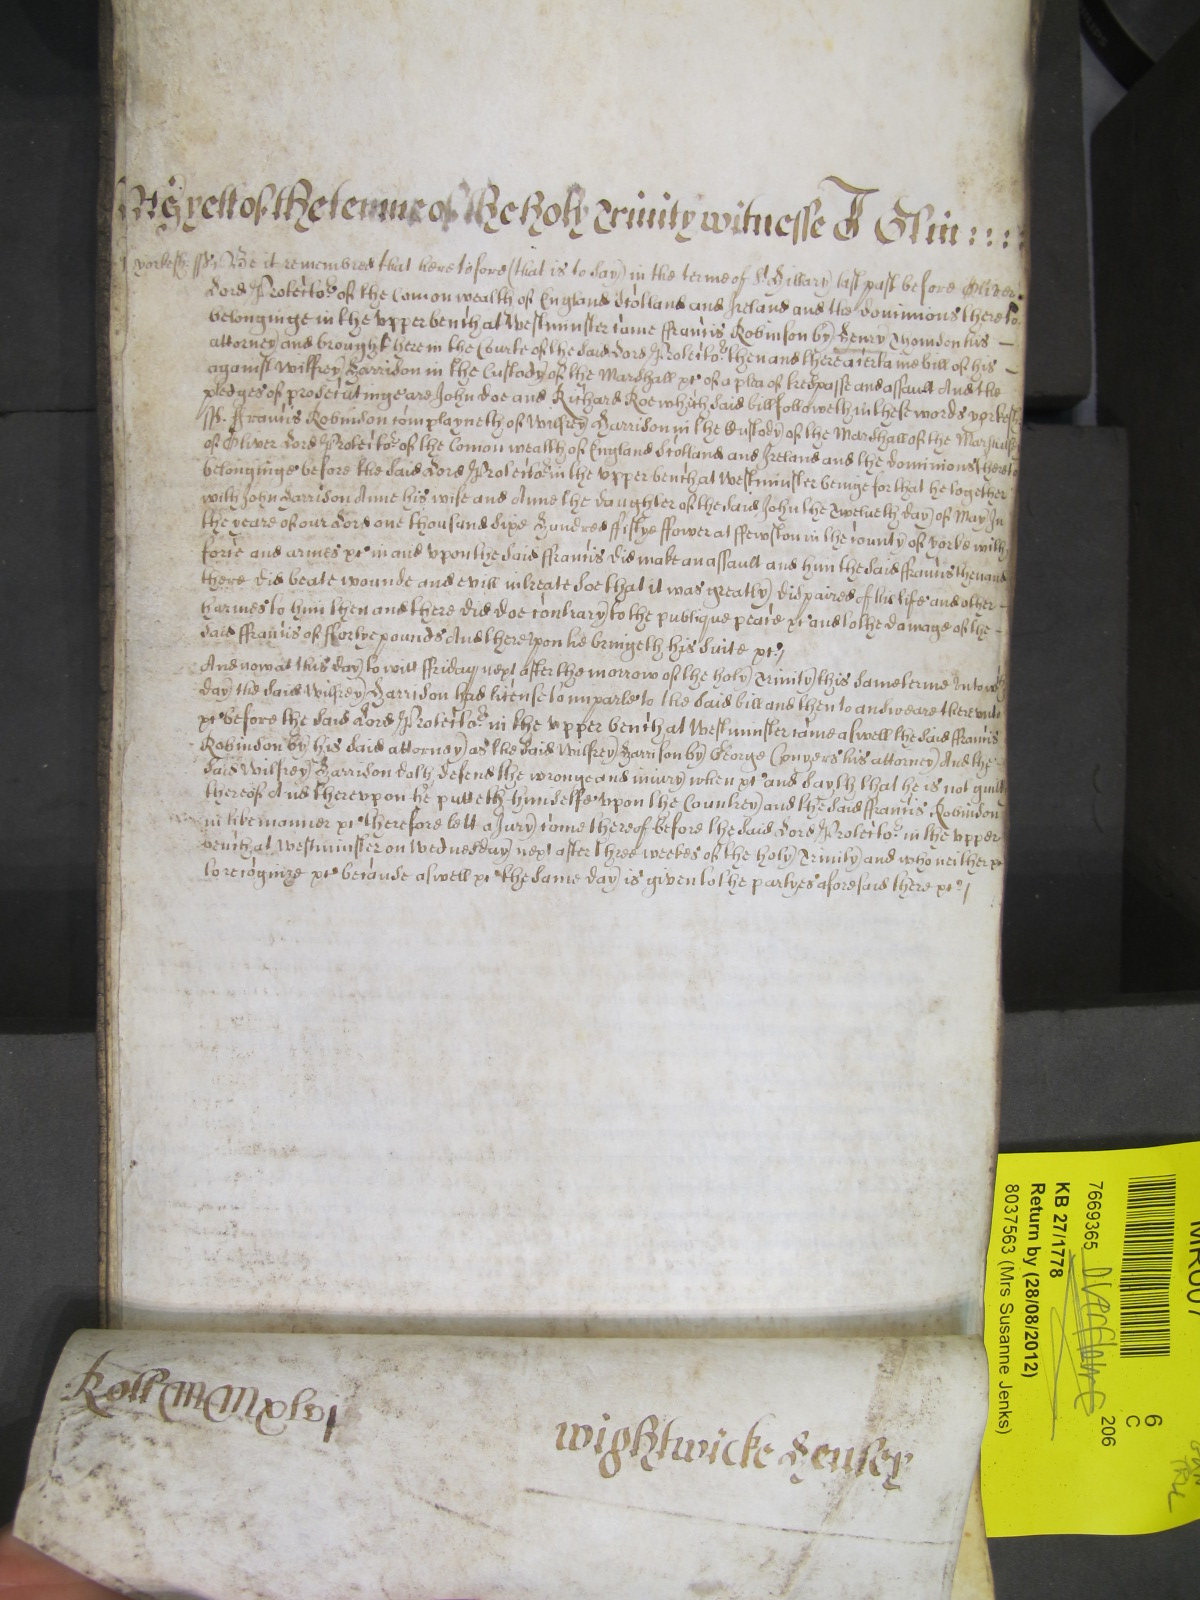 As yett of the terme of the holy Trinity witnesse J Glin : : : :
Yorkesh: ss: Be it remembred that heretofore (that is to say) in the terme of St Hillary last past before Oliver
Lord Protector of the Comon wealth of England Scotland and Ireland and the dominions thereto
belonginge in the upper bench at Westminster came ffrancis Robinson by Henry his
attorney and brought here in the Courte of the said Lord Protector then and there a certaine bill of his
against Wilfrey Harrison in the Custody of the Marshall &c of a plea of trespasse and assault And the
pledges of prosecutinge are John Doe and Richard Roe which said bill followeth in these words Yorkesh
ss. ffrancis Robinson complayneth of Wilfrey Harrison in the Custody of the Marshall of the Marshals
of Oliver Lord Protector of the Comon wealth of England Scotland and Ireland and the dominions thereto
belonginge before the said Lord Protector in the upper bench at Westminster beinge for that he together
with John Harrison Anne his wife and Anne the daughter of the said John the Twelveth day of May In
the yeare of our Lord one thousand sixe hundred fiftye ffower at ffewston in the county of Yorke with
force and armes &c in and upon the said ffrancis did make an assault and him the said ffrancis then and
there did beate wounde and evill intreate soe that it was greatly dispaired of his life and other
harmes to him then and there did doe contrary to the publique peace &c and to the damage of the
said ffrancis of ffortye pounds And thereupon he bringeth his suite &c
And now at this day to witt ffriday next after the morrow of the holy Trinity this same terme unto wch
day the said Wilfrey Harrison had license to imparle to the said bill and then to answeare thereunto
&c before the said Lord Protector in the upper bench at Westminster came aswell the said ffrancis
Robinson by his said attorney as the said Wilfrey Harrison by George Conyers his attorney And the
said Wilfrey Harrison doth defend the wronge and iniury when &c and sayth that he is not guilty
thereof And thereupon he putteth himselfe upon the Countrey and the said ffrancis Robinson
in like manner &c therefore lett a Jury come thereof before the said Lord Protector in the upper
bench at Westminster on Wednesday next after three weekes of the holy Trinity and who neither &c
to recognize &c because aswell &c the same day is given to the partyes aforesaid there &c
Wightwicke Henley
7669365
KB 27/1778
Return by (28/08/2012)
8037563 (Mrs Susanne Jenks)
6
C
206